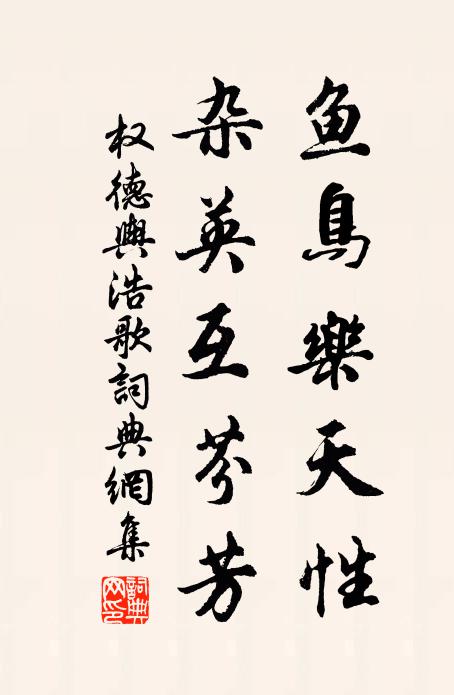 鱼鳥樂天性
杂英互芬芳
权德輿浩歌詞典網集
詞典網印